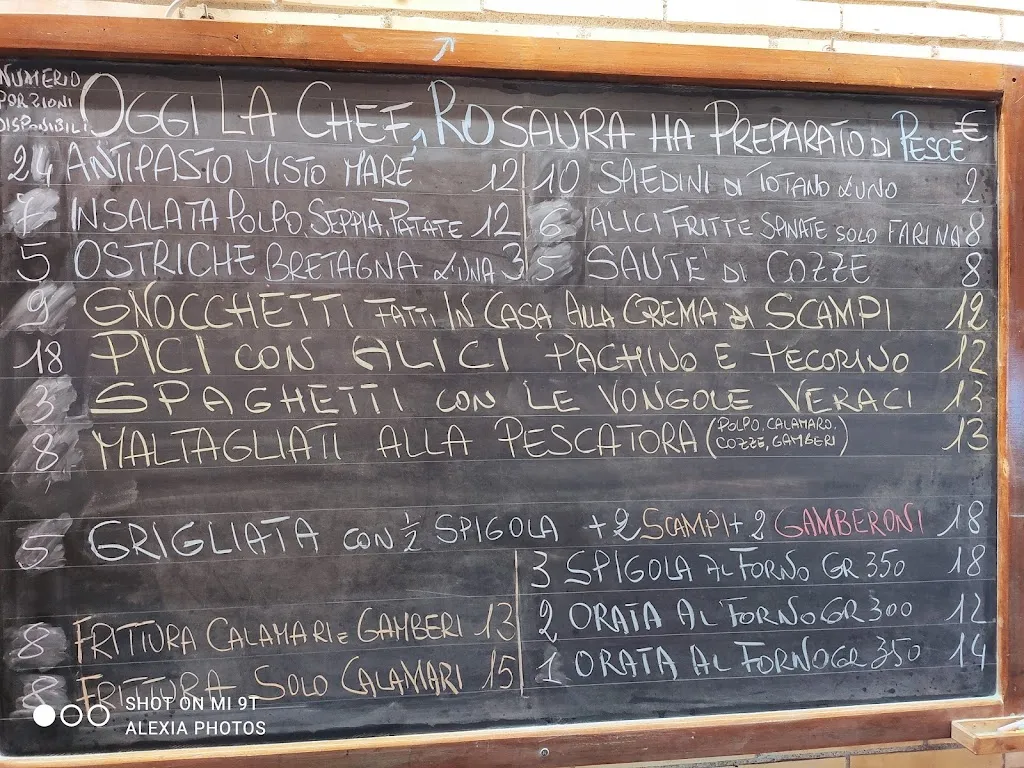 NUMERO
PORZIONI
DISPONIBILI
OGGI LA CHEF, ROSAURA HA PREPARATO DI PESCE €
24 ANTIPASTO MISTO MARE 12
7 INSALATA POLPO, SEPPIA, PATATE 12
5 OSTRICHE BRETAGNA L'UNA 3
10 SPIEDINI DI TOTANO L'UNO 2
6 ALICI FRITTE SPINATE SOLO FARINA 8
5 SAUTE' DI COZZE 8
9 GNOCCHETTI FATTI IN CASA ALLA CREMA DI SCAMPI 12
18 PICI CON ALICI PACHINO E PECORINO 12
3 SPAGHETTI CON LE VONGOLE VERACI 13
8 MALTAGLIATI ALLA PESCATORA (POLPO, CALAMARO, COZZE, GAMBERI) 13
5 GRIGLIATA CON 1/2 SPIGOLA +2 SCAMPI + 2 GAMBERONI 18
3 SPIGOLA AL FORNO GR 350 18
2 ORATA AL FORNO GR 300 12
1 ORATA AL FORNO GR 350 14
8 FRITTURA CALAMARI E GAMBERI 13
8 FRITTURA SOLO CALAMARI 15
SHOT ON MI 9T
ALEXIA PHOTOS